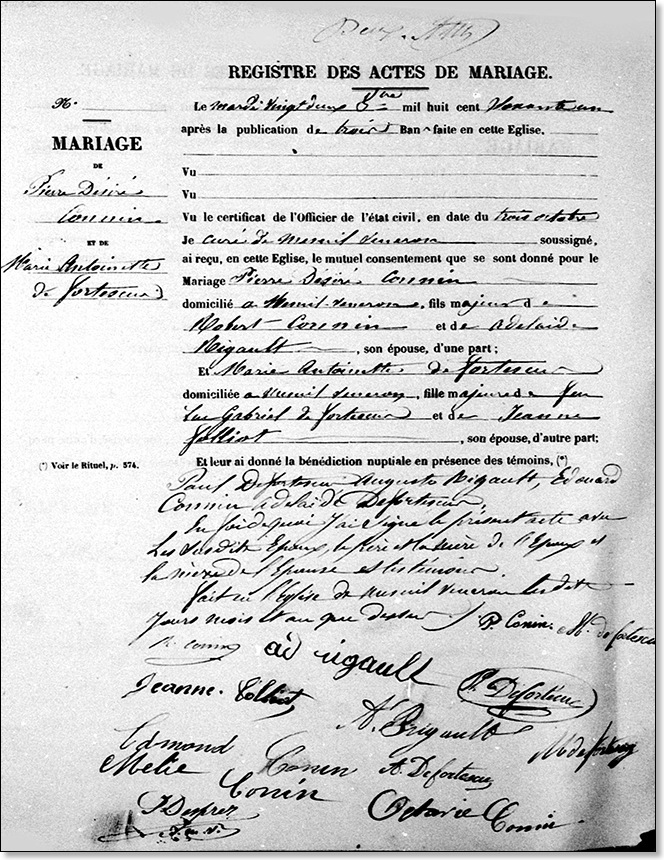 REGISTRE DES ACTES DE MARIAGE.
N.
Le mardi vingt deux 8bre mil huit cent soixante un
après la publication de trois Bans faite en cette Eglise.
MARIAGE
DE
Pierre Désiré
Connin
ET DE
Marie Antoinette
de fortescu
Vu
Vu
Vu le certificat de l'Officier de l'état civil, en date du trois octobre
Je curé de mesnil veneron soussigné,
ai reçu, en cette Eglise, le mutuel consentement que se sont donné pour le
Mariage Pierre Désiré Connin
domicilié a Mesnil-veneron, fils majeur de
Robert Connin et de adelaide
Rigault, son épouse, d'une part;
Et Marie Antoinette de fortescu
domiciliée a mesnil veneron, fille majeure de feu
Luc Gabriel de fortescu et de Jeanne
folliot, son épouse, d'autre part;
(*) Voir le Rituel, p. 574.
Et leur ai donné la bénédiction nuptiale en présence des témoins, (*)
Paul Defortescu Auguste Rigault, Edouard
Connin adelaide Defortescu
En foi de quoi J'ai signé le présent acte avec
Les susdits Epoux, le père et la mère de l'Epoux et
la mère de l'Epouse et les témoins
fait en l'Eglise de mesnil veneron les dits
Jours mois et an que dessus P. Conin. M. de fortescu
R. Conin
ad rigault
Jeanne folliot
P. Defortescu
A. Rigault
M de fortescu
Edmond Conin
A. Defortescu
Melie Conin
Octavie Conin